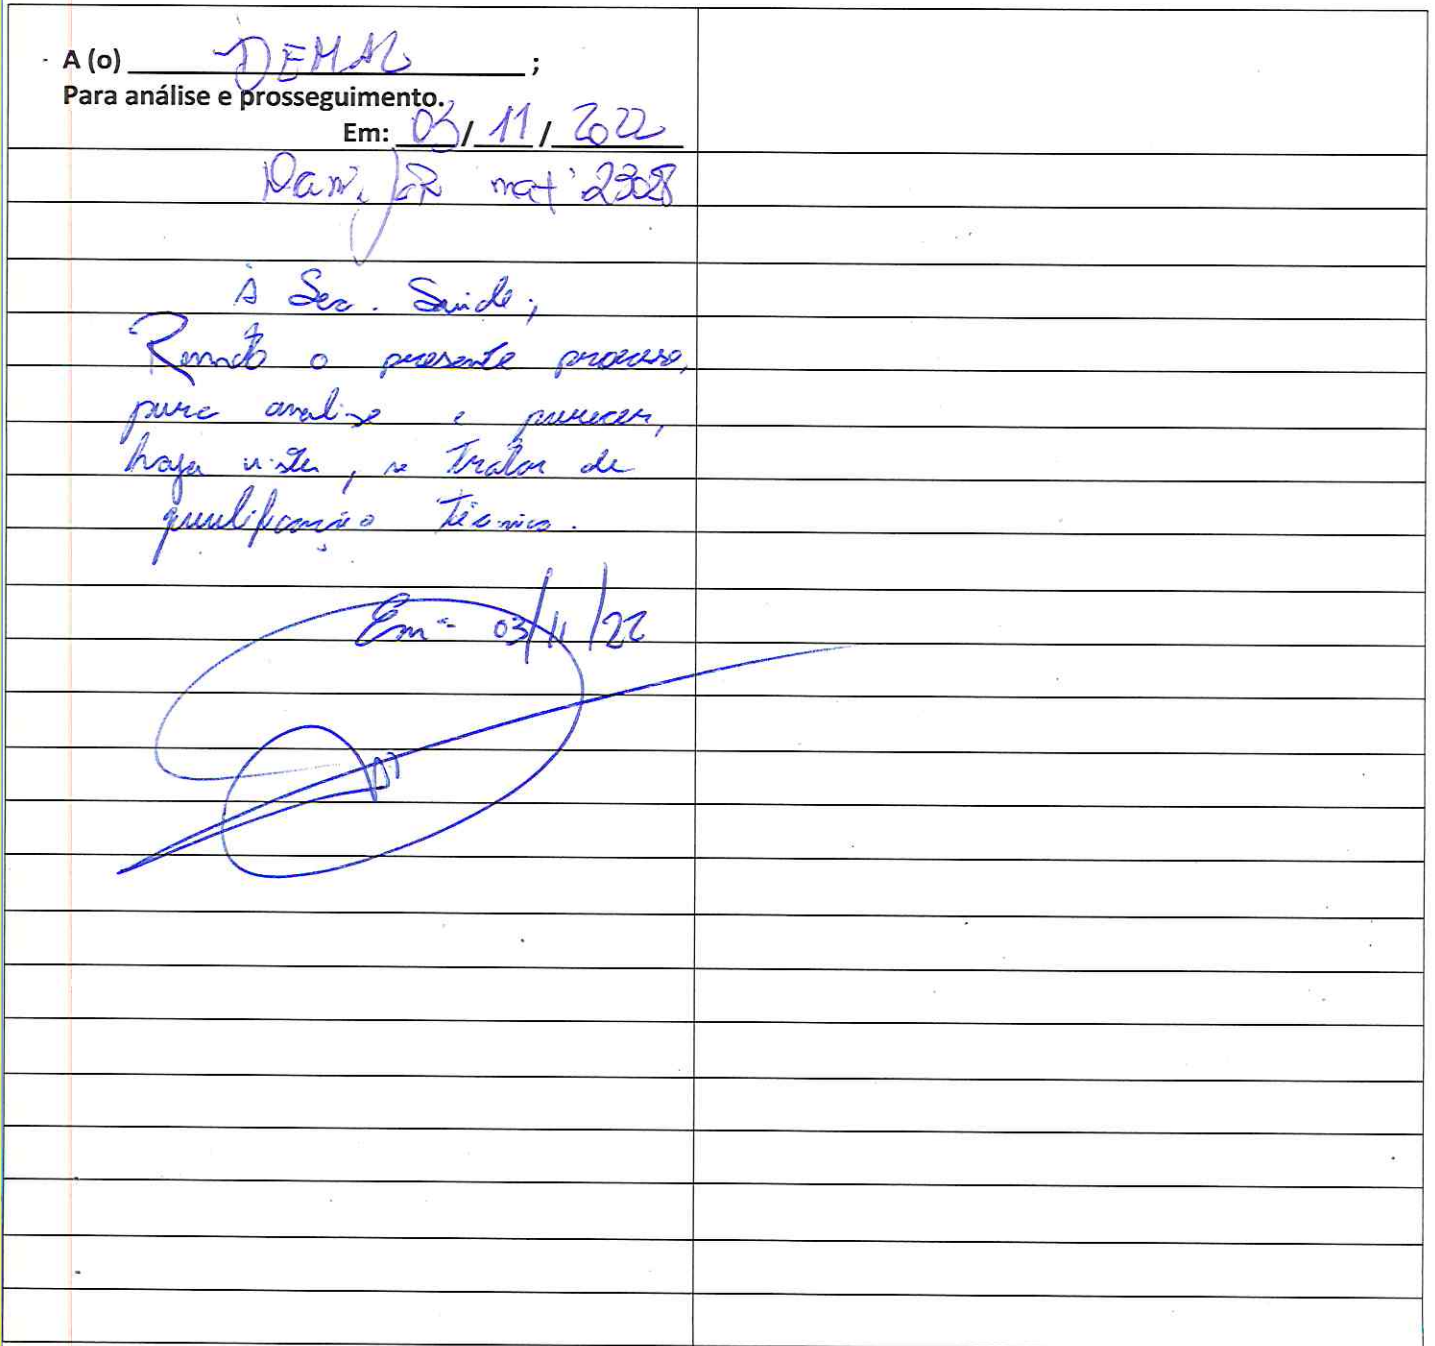 A (o) DEMAR ;
Para análise e prosseguimento.
Em: 03/ 11 / 2022
mat 23028
À Sec. Saúde;
Remeto o presente processo,
para analise e parecer,
haja vista, se tratar de
qualificação técnica.
Em - 03/11/22